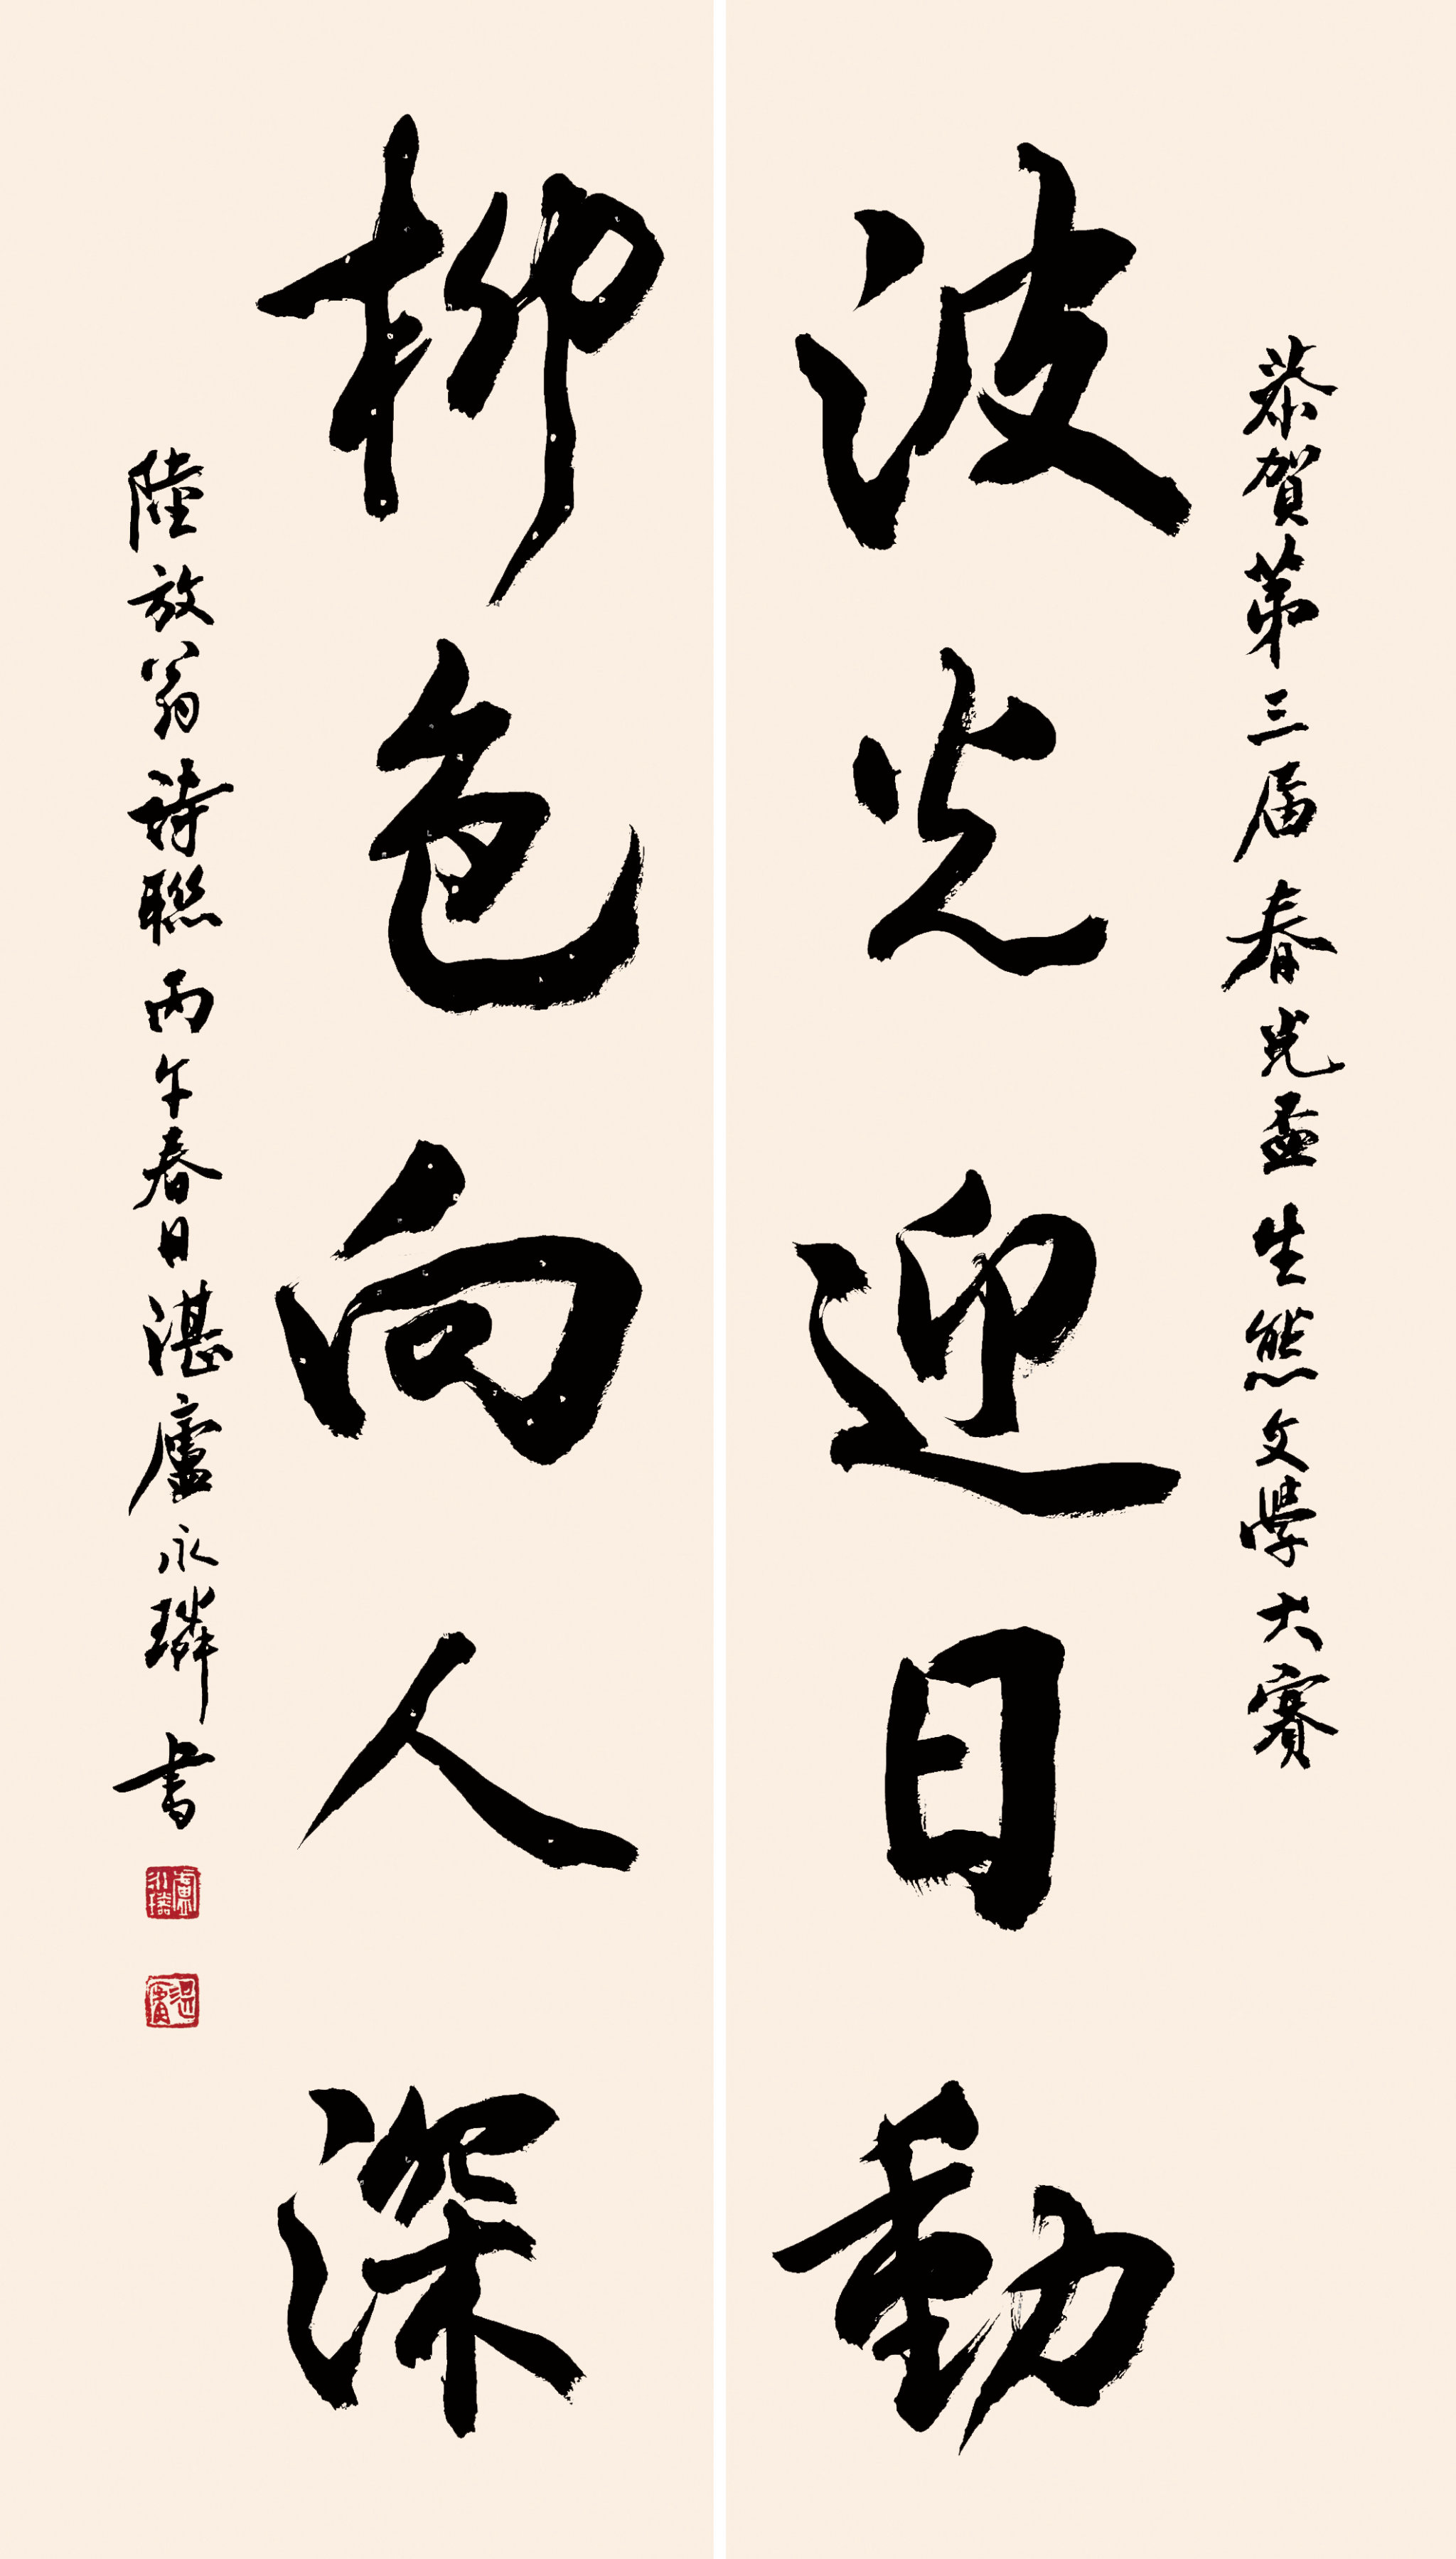 恭賀第三届春光盃生態文學大赛
波光迎日動
柳色向人深
陸放翁詩聯丙午春日湛廬永璘书